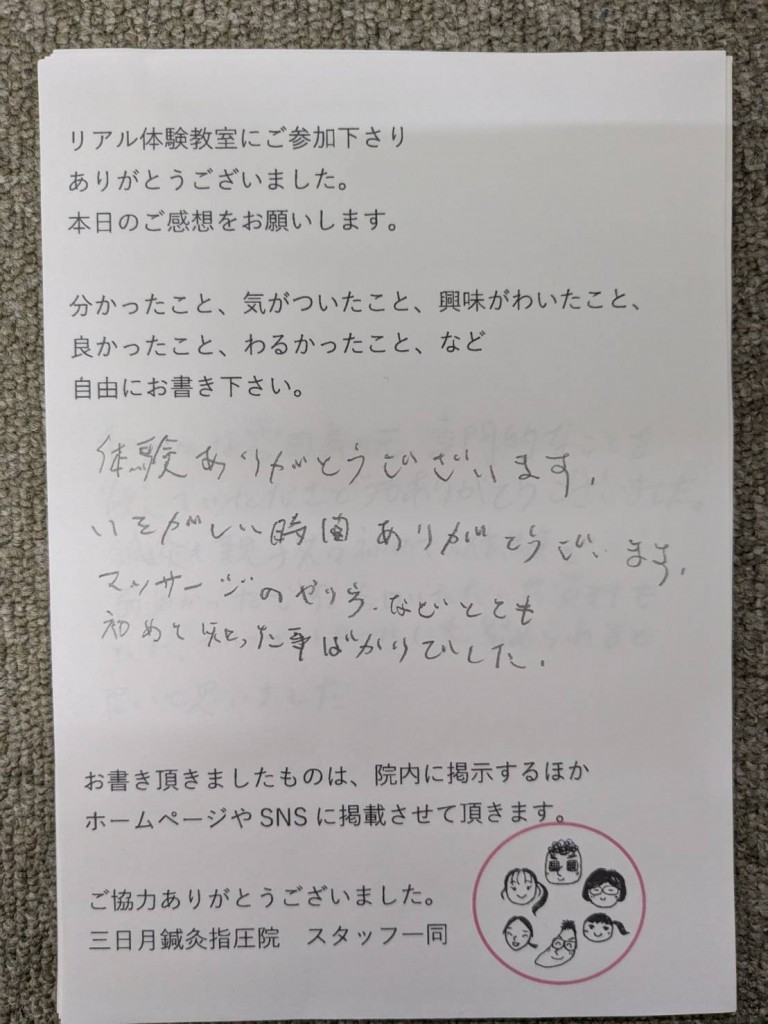 リアル体験教室にご参加下さり
ありがとうございました。
本日のご感想をお願いします。
分かったこと、気がついたこと、興味がわいたこと、
良かったこと、わるかったこと、など
自由にお書き下さい。
体験ありがとうございます。
いそがしい時間ありがとうございます。
マッサージのやり方.などとても
初めて知った事ばかりでした.
お書き頂きましたものは、院内に掲示するほか
ホームページやSNSに掲載させて頂きます。
ご協力ありがとうございました。
三日月鍼灸指圧院　スタッフ一同